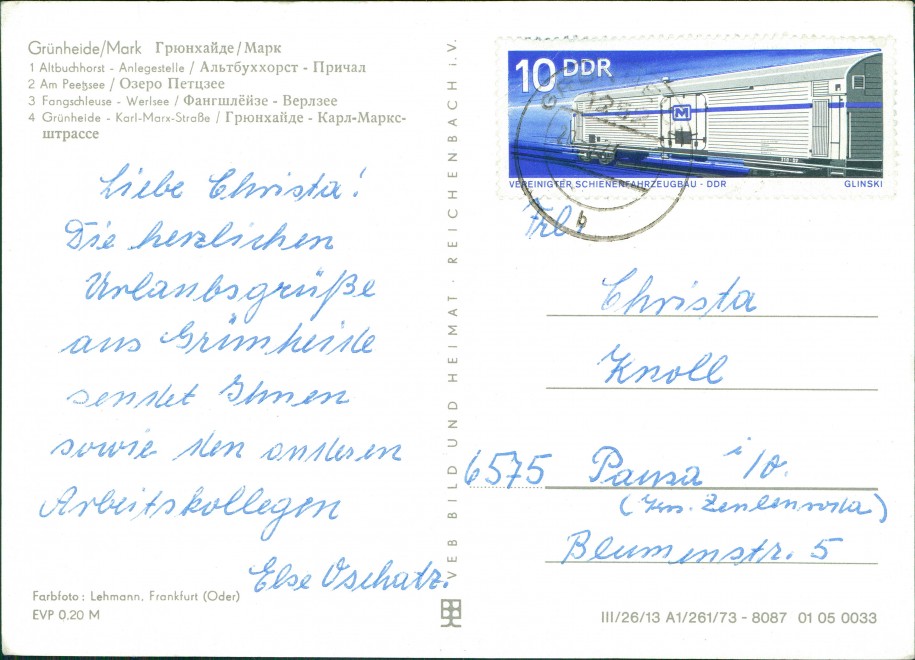 Grünheide/Mark Грюнхайде/Марк
1 Altbuchhorst - Anlegestelle / Альтбуххорст - Причал
2 Am Peetzsee / Озеро Петцзее
3 Fangschleuse - Werlsee / Фангшлёйзе - Верлзее
4 Grünheide - Karl-Marx-Straße / Грюнхайде - Карл-Маркс-
штрассе
Liebe Christa!
Die herzlichen
Urlaubsgrüße
aus Grünheide
sendet Ihnen
sowie den anderen
Arbeitskollegen
Else Oschatz.
Farbfoto: Lehmann, Frankfurt (Oder)
EVP 0.20 M
VEB BILD UND HEIMAT · REICHENBACH i.V.
10 DDR
M
VEREINIGTER SCHIENENFAHRZEUGBAU - DDR GLINSKI
b
Frl.
Christa
Knoll
6575 Pausa i/V.
(Krs. Zeulenroda)
Blumenstr. 5
III/26/13 A1/261/73 - 8087 01 05 0033